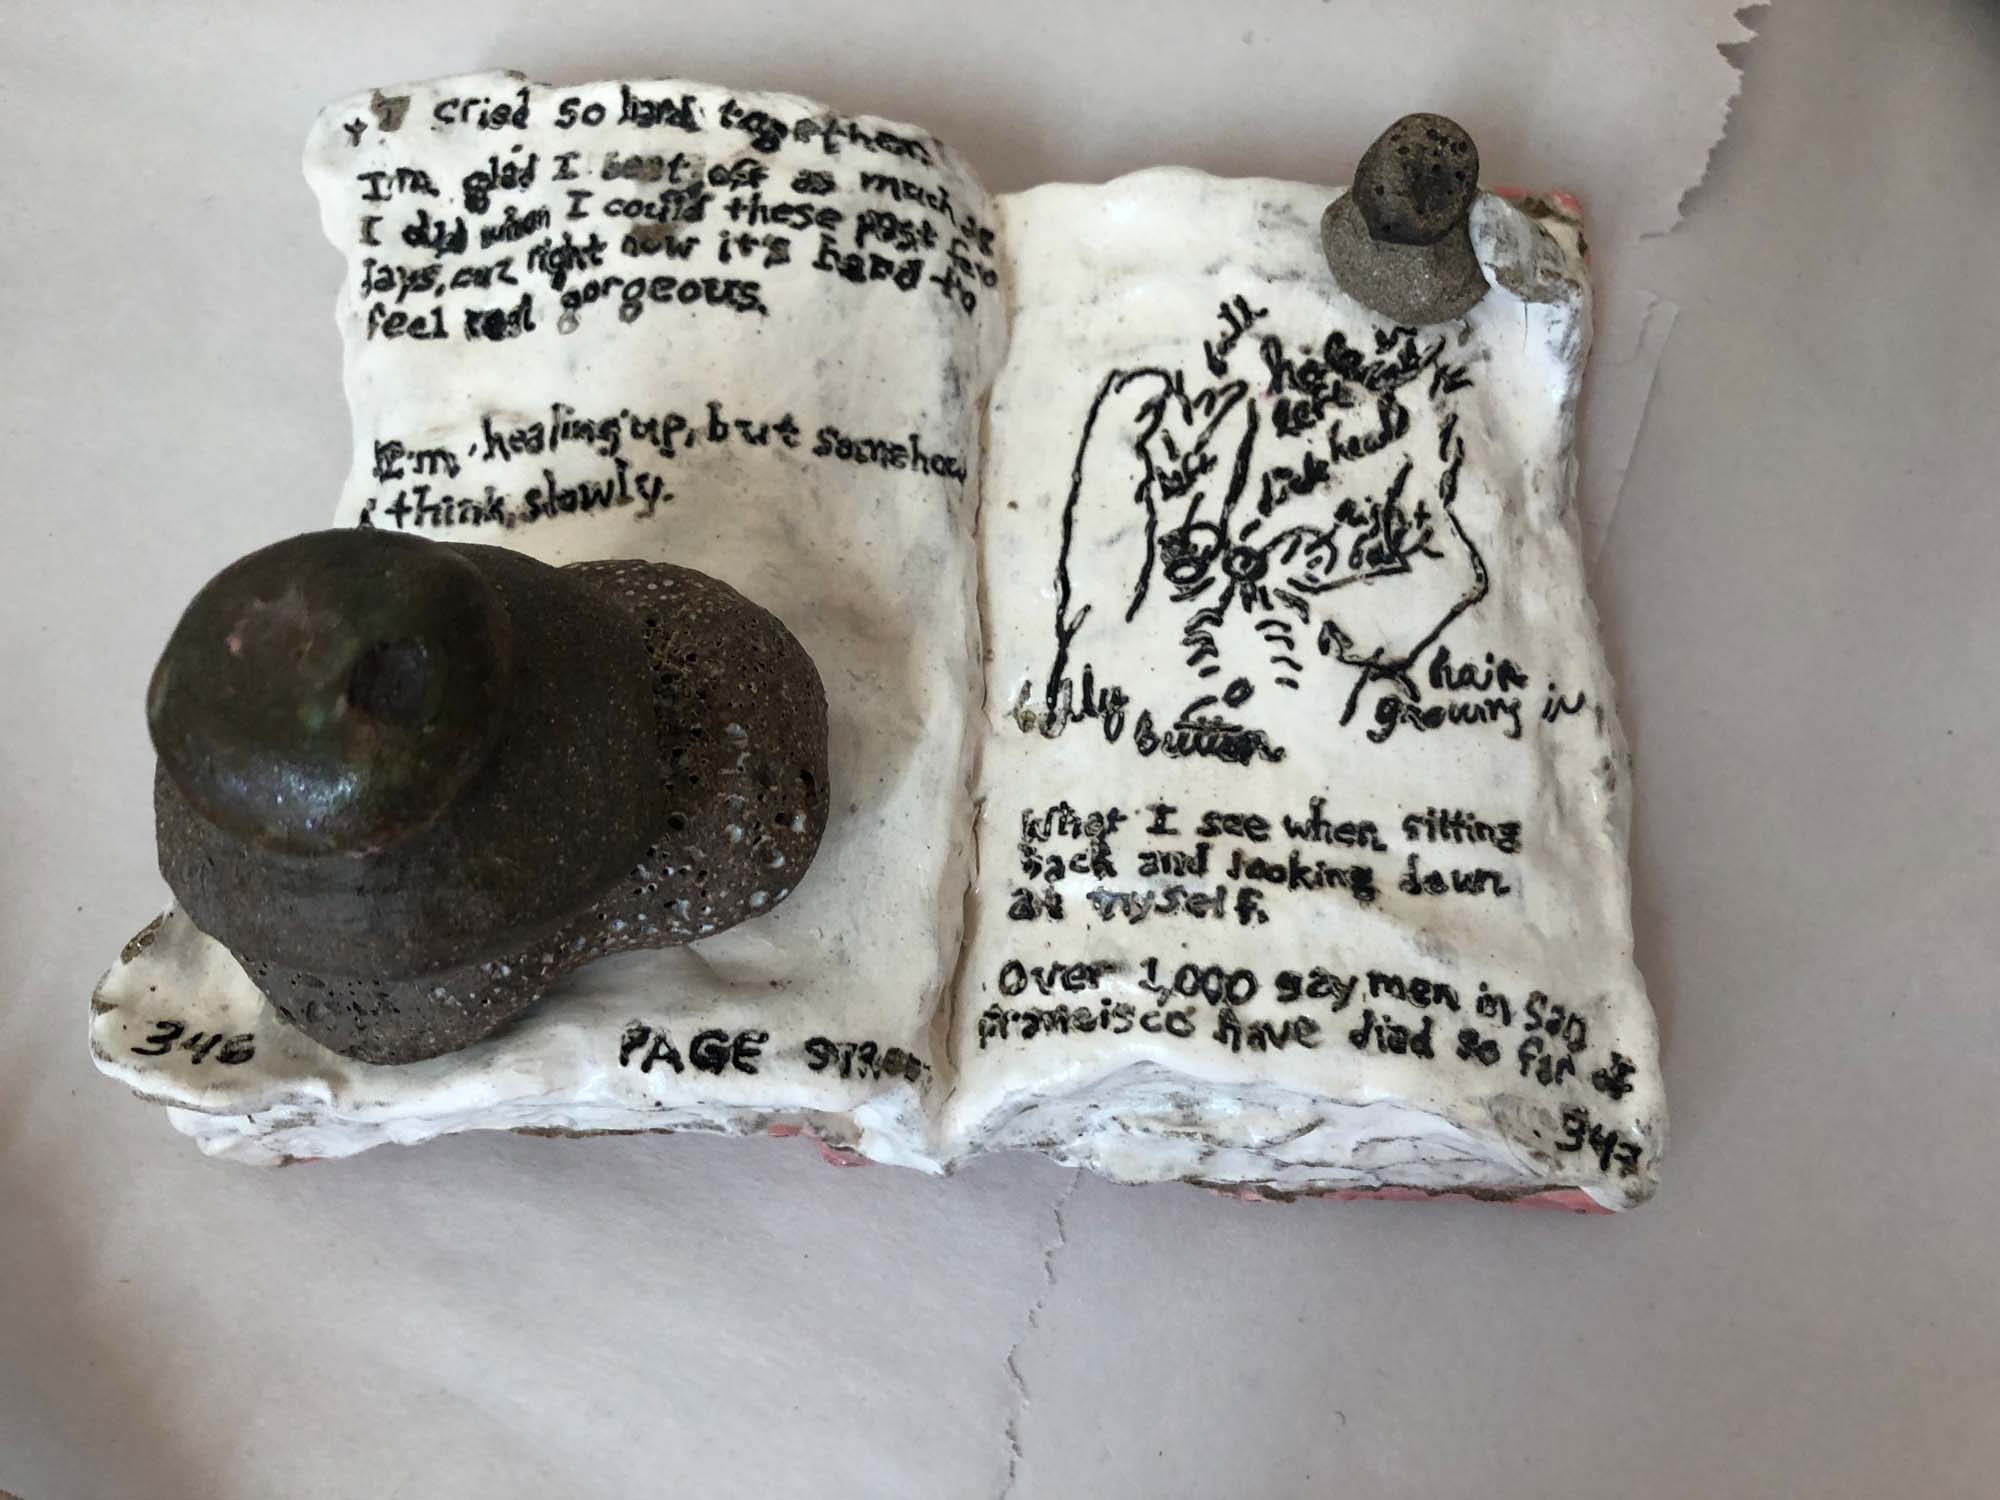 + I cried so hard together.
I'm glad I beat off as much as
I did when I could these past few
days, cuz right now it's hard to
feel real gorgeous.
I'm healing up, but somehow
I think, slowly.
346
PAGE
left
dick head
right
hair
growing in
belly
button
What I see when sitting
back and looking down
at myself.
Over 1,000 gay men in San
Francisco have died so far of
347